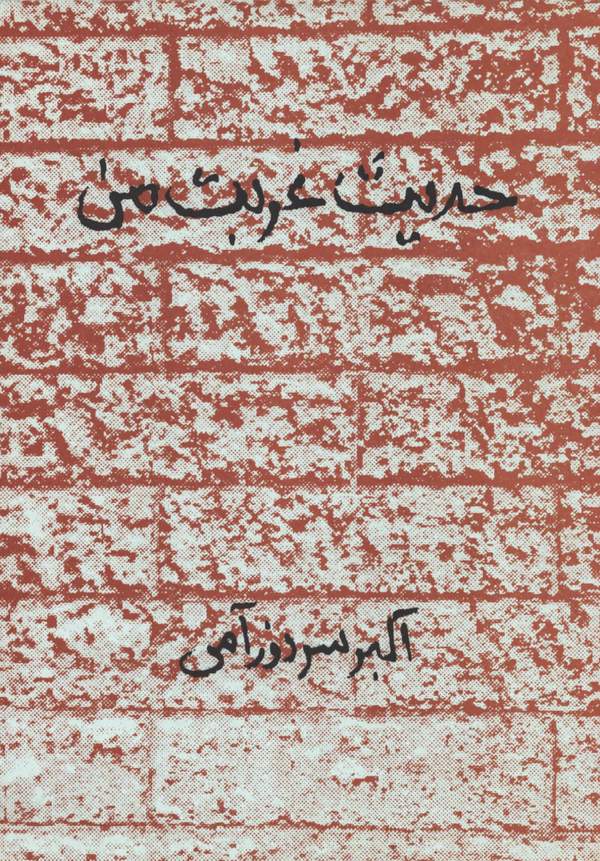 حدیث غربت من
اکبر سردوزآمی